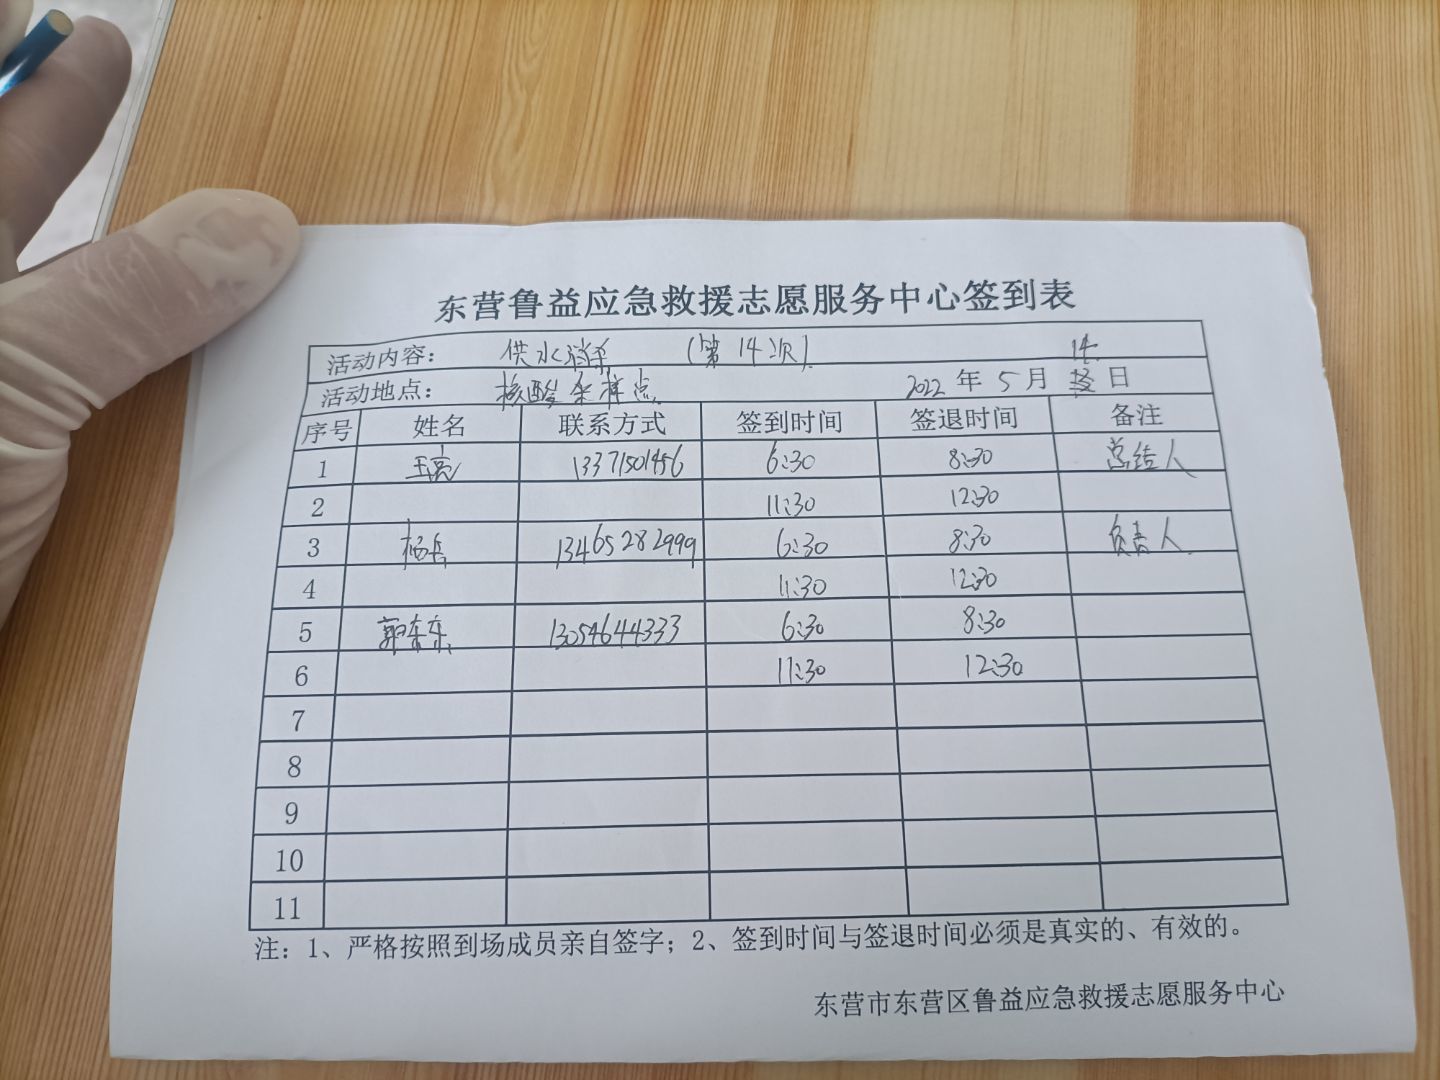 东营鲁益应急救援志愿服务中心签到表
活动内容： 供水消杀 （第14次）
14
活动地点： 核酸采样点 2022 年 5 月 日
序号 姓名 联系方式 签到时间 签退时间 备注
1 王亮 13371501456 6:30 8:30 总结人
2 11:30 12:30
3 杨兵 13465282999 6:30 8:30 负责人
4 11:30 12:30
5 郭东东 13054644333 6:30 8:30
6 11:30 12:30
7
8
9
10
11
注：1、严格按照到场成员亲自签字；2、签到时间与签退时间必须是真实的、有效的。
东营市东营区鲁益应急救援志愿服务中心